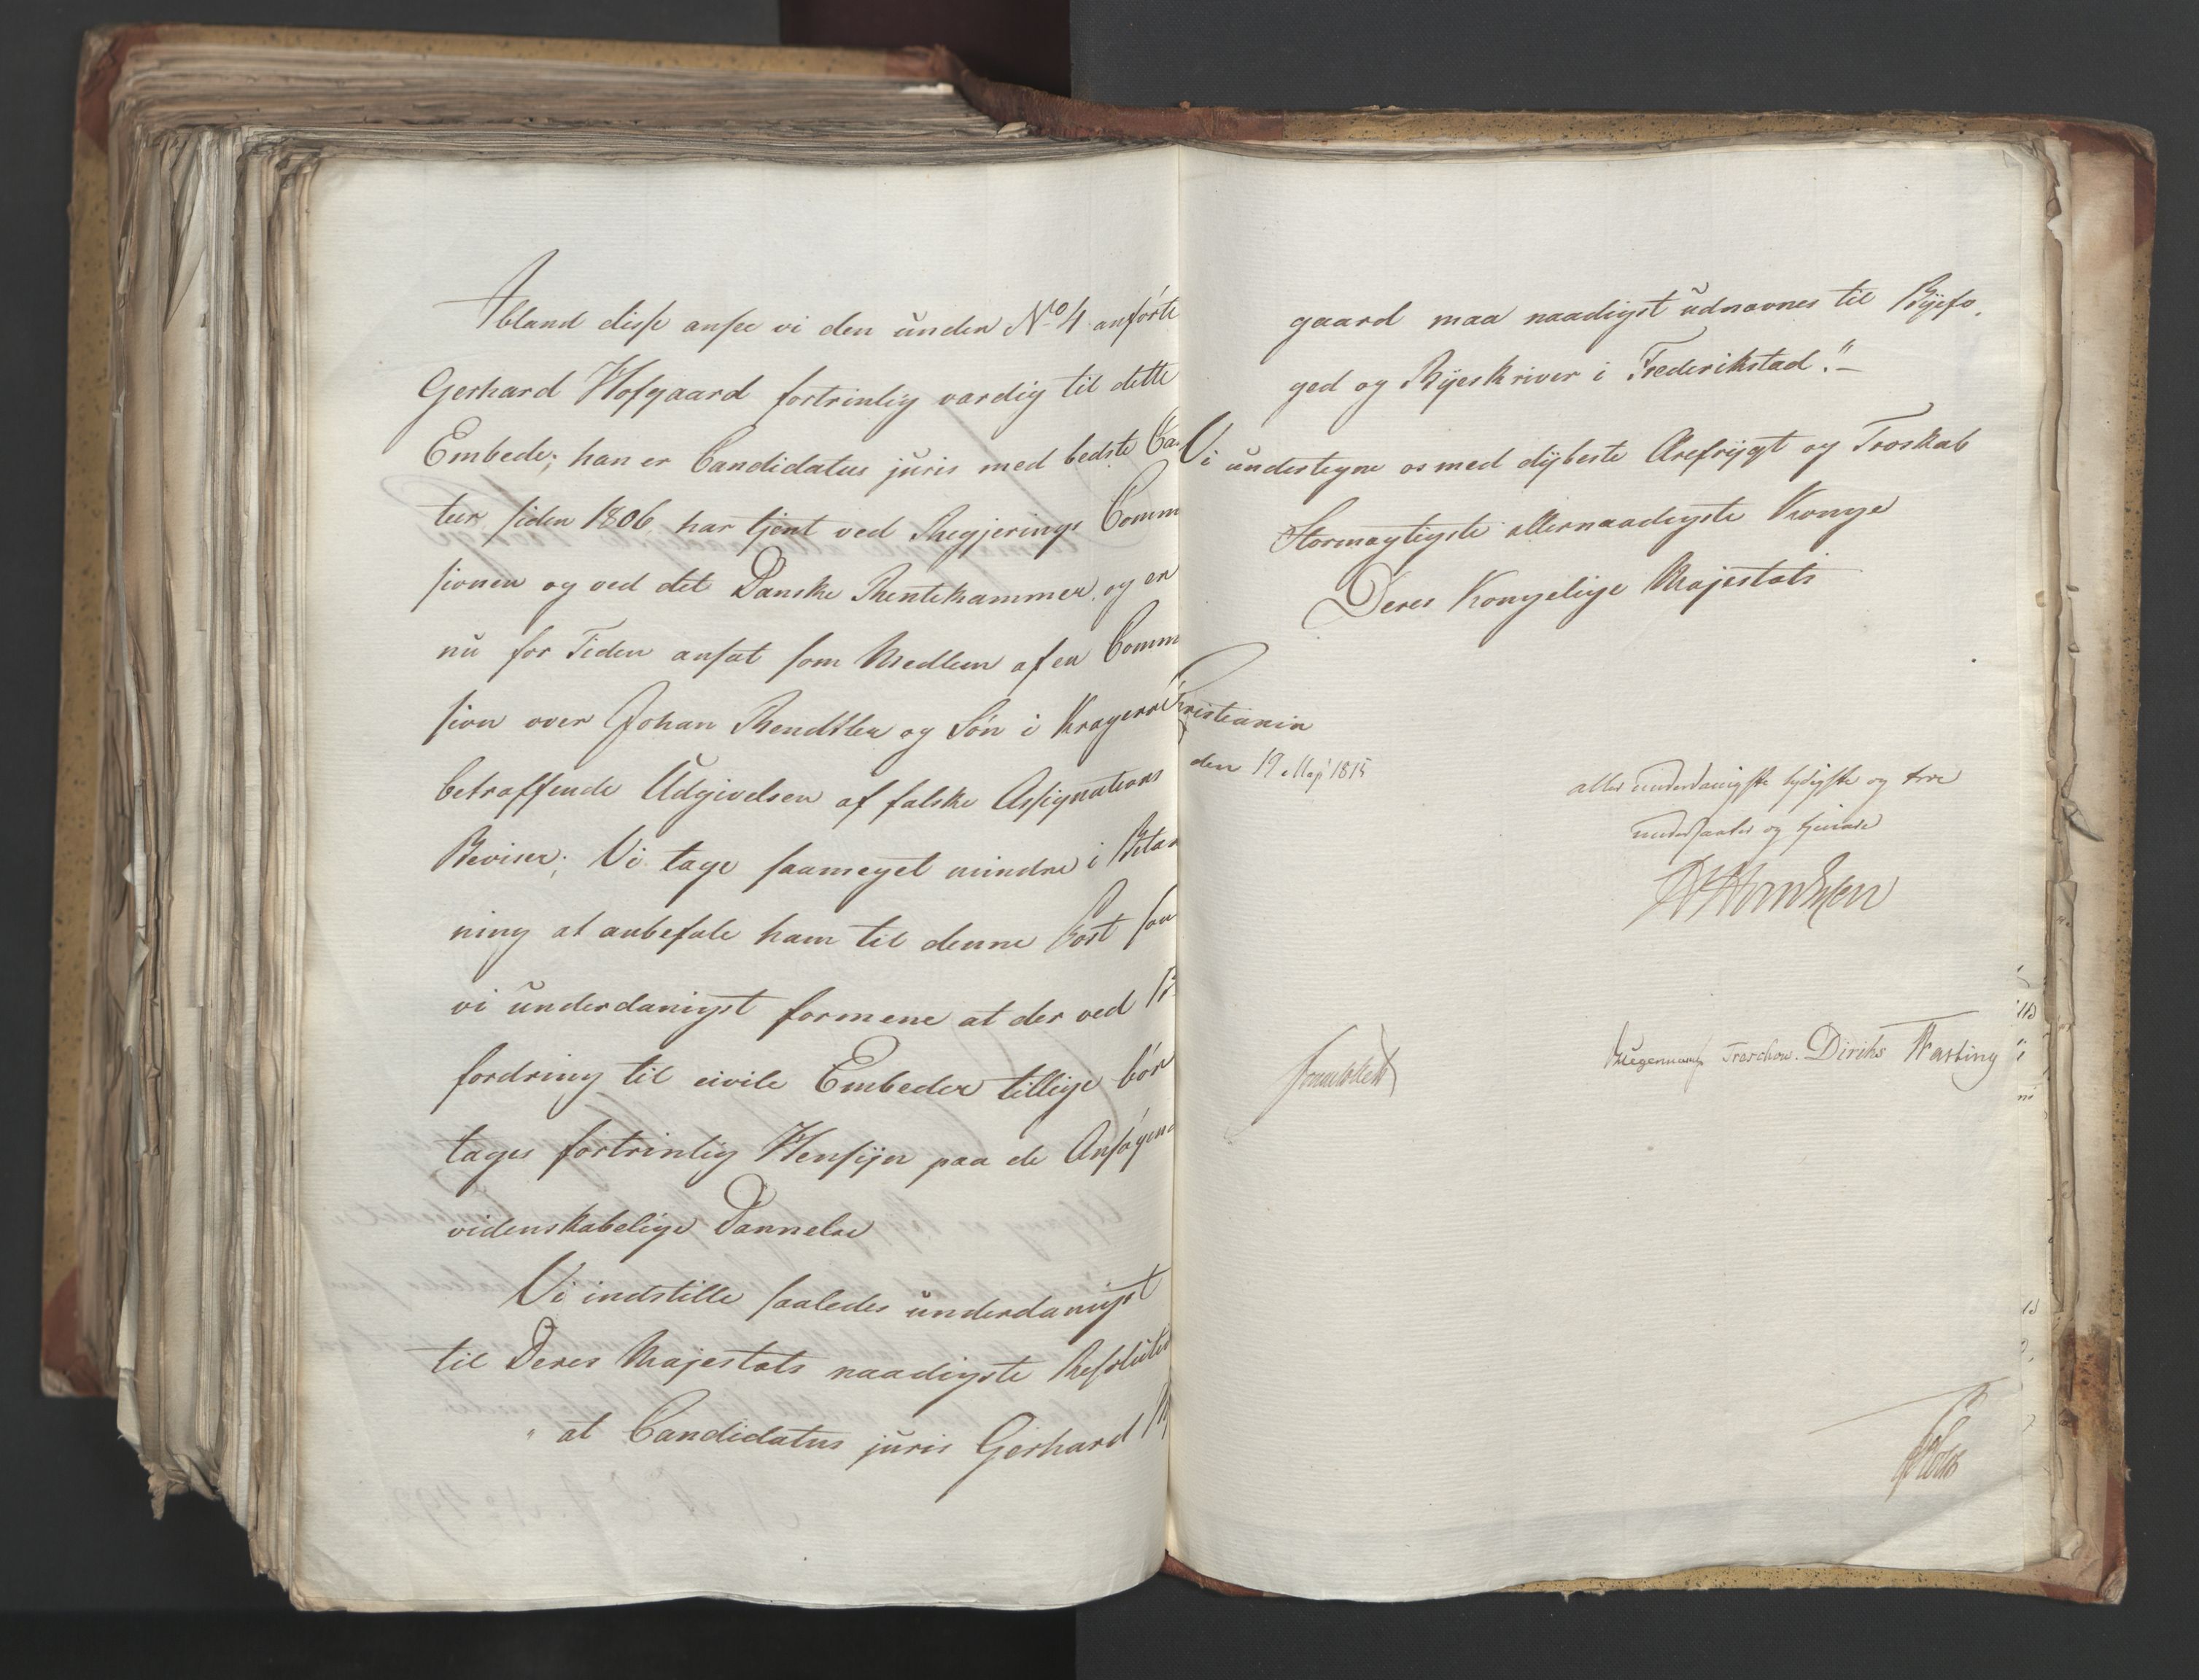 Ibland disse ansee vi den under No 4 anförte
Gerhard Hofgaard fortrinlig værdig til dette
Embede; han er Candidatus juris med bedste Ca
teer siden 1806, har tjent ved Regjerings Comm
sionen og ved det Danske Rentekammer, og er
nu for Tiden ansat som Medlem af en Comm
sion over Johan Bendtler og Sön i Krageröe
betræffende Udgivelsen af falske Assignations
Beviser; Vi tage saameget mindre i Betæn
ning at anbefale ham til denne Post som
vi underdanigst formene at der ved B
fordring til civile Embeder tillige bör
tages fortrinlig Hensÿn paa de Ansögend
videnskabelige Dannelse
Vi indstille saaledes underdanigst
til Deres Majestæts naadigste Resolution
"at Candidatus juris Gerhard H
gaard maa naadigst udnævnes til Bÿefo,
ged og Bÿeskriver i Frederikstad."
Vi undertegne os med dÿbeste Ærefrÿgt og Troskab
Stormægtigste allernaadigste Konge
Deres Kongelige Majestæts
Christiania
den 19 Maji 1815
allerunderdanigste lydigste og troe
undersaatter og tjenere
Sommerhielm
Treschow. Diriks Fasting